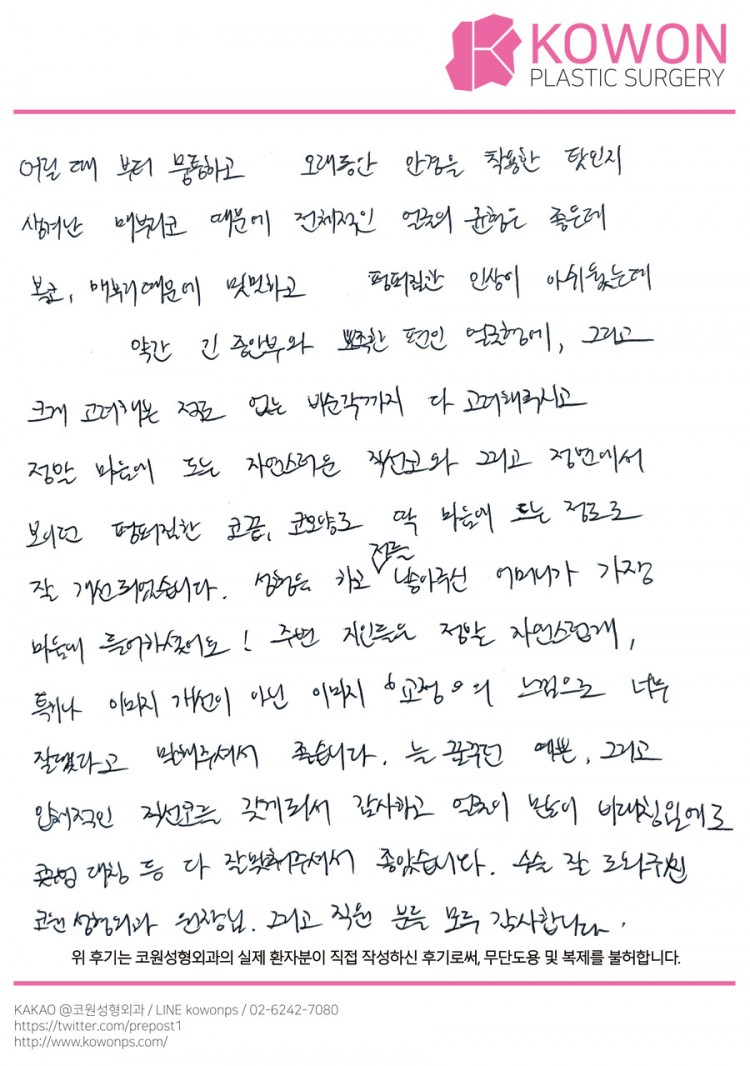 KOWON
PLASTIC SURGERY
어릴 때 부터 뭉툭하고 오래동안 안경을 착용한 탓인지
생겨난 매부리코 때문에 전체적인 얼굴의 균형은 좋은데
복코, 매부리때문에 밋밋하고 펑퍼짐한 인상이 아쉬웠는데
약간 긴 중안부와 뾰족한 편인 얼굴형에, 그리고
크게 고려해본 적도 없는 비순각까지 다 고려해주시고
정말 마음에 드는 자연스러운 직선코와 그리고 정면에서
보이던 펑퍼짐한 코끝, 코모양도 딱 마음에 드는 정도로
잘 개선되었습니다. 성형을 하고 저를 낳아주신 어머니가 가장
마음에 들어하셨어요! 주변 지인들도 정말 자연스럽게,
특히나 이미지 개선이 아닌 이미지 "교정"의 느낌으로 너무
잘됐다고 말해주셔서 좋습니다. 늘 꿈꾸던 예쁜, 그리고
입체적인 직선코를 갖게되서 감사하고 얼굴이 많이 비대칭임에도
콧구멍 대칭 등 다 잘맞춰주셔서 좋았습니다. 수술 잘 도와주신
코원 성형외과 원장님. 그리고 직원 분들 모두 감사합니다.
위 후기는 코원성형외과의 실제 환자분이 직접 작성하신 후기로써, 무단도용 및 복제를 불허합니다.
KAKAO @코원성형외과 / LINE kowonps / 02-6242-7080
https://twitter.com/prepost1
http://www.kowonps.com/